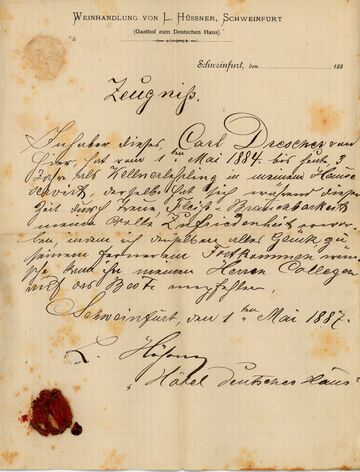 WEINHANDLUNG VON L. HÜSSNER, SCHWEINFURT
(Gasthof zum Deutschen Haus).
Schweinfurt, den 188
Zeugniß.
Inhaber dieses, Carl Drescher von
hier, hat vom 1ten Mai 1884 bis heute, 3
Jahre als Kellnerlehrling in meinem Hause
servirt, derselbe hat sich während dieser
Zeit durch Treue, Fleiß, Brauchbarkeit
meine volle Zufriedenheit erwor-
ben, wenn ich demselben alles Glück zu
seinem ferneren Fortkommen wün-
sche, kann ihn meinen Herren Collegen
auf das Beste empfehlen.
Schweinfurt, den 1ten Mai 1887.
L. Hüßner
"Hôtel deutsches Haus"